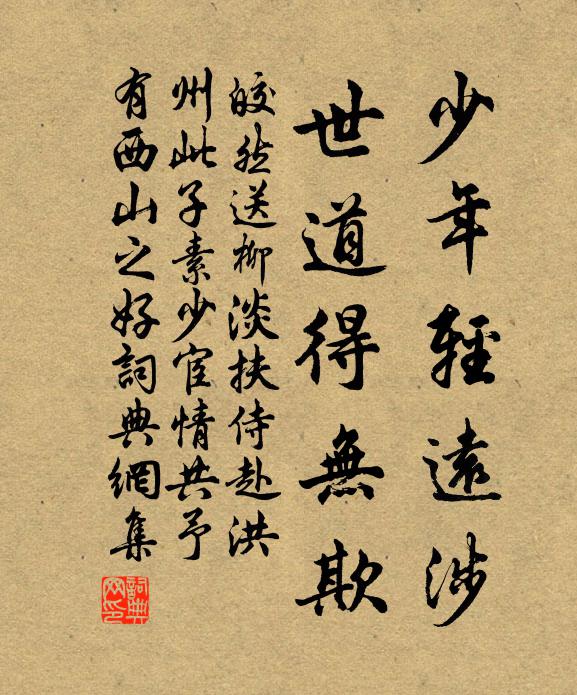 少年輕遠涉
世道得無欺
皎然送柳淡扶侍赴洪
州此子素少宦情共予
有西山之好詞典網集
詞典网印